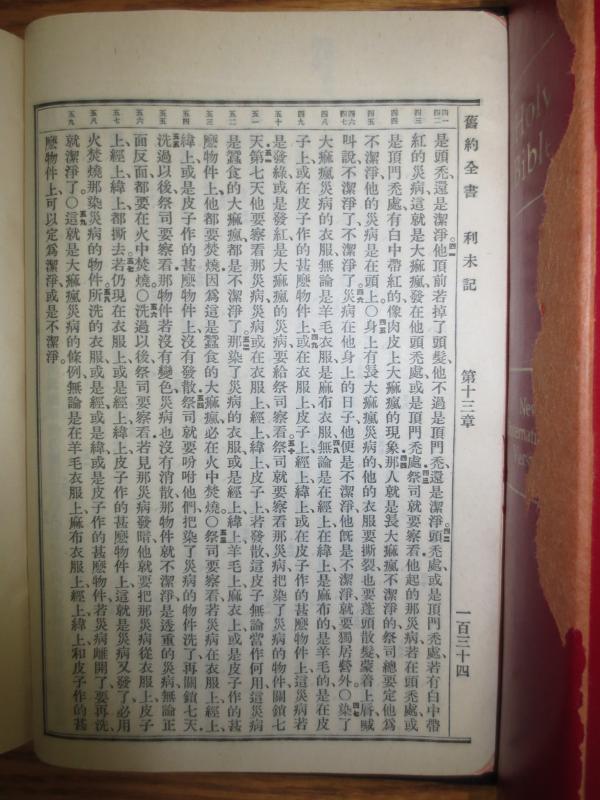 舊約全書 利未記 第十三章 一百三十四
是頭禿、還是潔淨、他頂前若掉了頭髮、他不過是頂門禿、還是潔淨、頭禿處、或是頂門禿處、若有白中帶
紅的災病、這就是大痲瘋發在他頭禿處、或是頂門禿處、祭司就要察看他起的那災病若在頭禿處或
是頂門禿處有白中帶紅的、像肉皮上大痲瘋的現象、那人就是長大痲瘋、不潔淨的、祭司總要定他為
不潔淨、他的災病是在頭上。〇身上有長大痲瘋災病的、他的衣服要撕裂、也要蓬頭散髮、蒙着上唇、喊
叫說、不潔淨了、不潔淨了、災病在他身上的日子、他便是不潔淨、他既是不潔淨、就要獨居營外。〇染了
大痲瘋災病的衣服、無論是羊毛衣服、是麻布衣服、無論是在經上、在緯上、是麻布的、是羊毛的、是在皮
子上、或在皮子作的甚麼物件上、或在衣服上、皮子上、經上、緯上、或在皮子作的甚麼物件上、這災病若
是發綠、或是發紅、是大痲瘋的災病、要給祭司察看、祭司就要察看那災病、把染了災病的物件關鎖七
天、第七天他要察看那災病、災病或在衣服上、經上、緯上、皮子上、若發散、這皮子無論當作何用、這災病
是蠶食的大痲瘋、都是不潔淨了、那染了災病的衣服、或是經上、緯上、羊毛上、麻衣上、或是皮子作的甚
麼物件上、他都要焚燒、因為這是蠶食的大痲瘋、必在火中焚燒。〇祭司要察看、若災病在衣服上、經上、
緯上、或是皮子作的甚麼物件上、沒有發散、祭司就要吩咐他們、把染了災病的物件洗了、再關鎖七天、
洗過以後、祭司要察看、那物件若沒有變色、災病也沒有消散、那物件就不潔淨、是透重的災病、無論正
面反面、都要在火中焚燒。〇洗過以後、祭司要察看、若見那災病發暗、他就要把那災病從衣服上、皮子
上、經上、緯上、都撕去、若仍現在衣服上、或是經上、緯上、皮子作的甚麼物件上、這就是災病又發了、必用
火焚燒那染災病的物件、所洗的衣服、或是經、或是緯、或是皮子作的甚麼物件、若災病離開了、要再洗、
就潔淨了。〇這就是大痲瘋災病的條例、無論是在羊毛衣服上、麻布衣服上、經上、緯上、和皮子作的甚
麼物件上、可以定為潔淨、或是不潔淨。
Holy
Bible
New